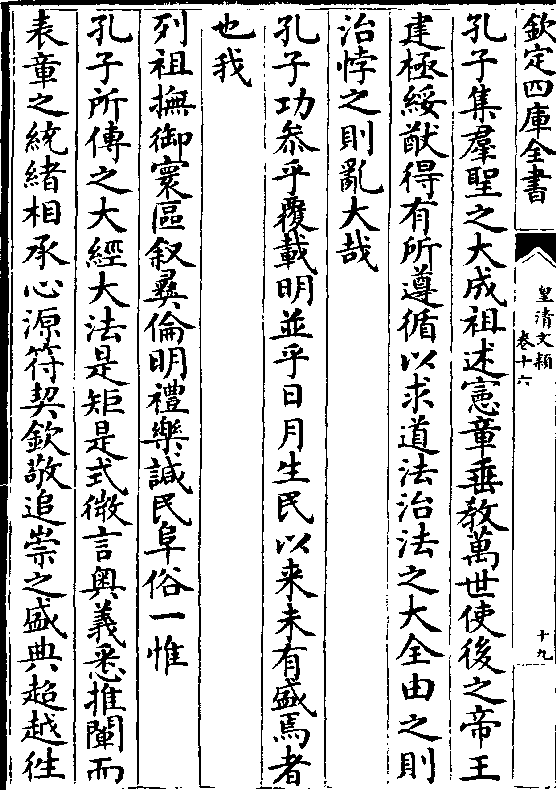 欽定四庫全書
皇清文穎
卷十六
十九
孔子集羣聖之大成祖述憲章垂敎萬世使後之帝王
建極綏猷得有所遵循以求道法治法之大全由之則
治悖之則亂大哉
孔子功叅乎覆載明並乎日月生民以来未有盛焉者
也我
列祖撫御寰區叙彛倫明禮樂諴民阜俗一惟
孔子所傳之大經大法是矩是式微言奧義悉推闡而
表章之統緒相承心源符契欽敬追崇之盛典超越徃